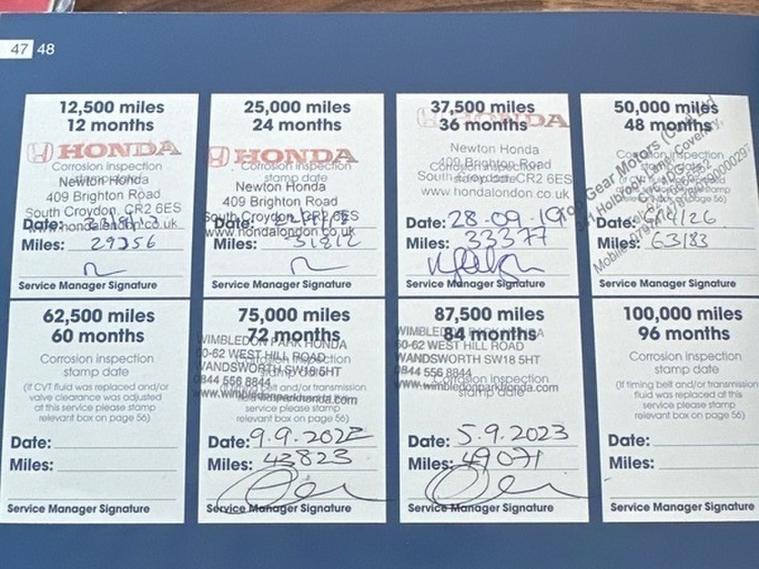 47 48
12,500 miles
12 months
HONDA
Corrosion inspection
stamp date
Newton Honda
409 Brighton Road
South Croydon, CR2 6ES
www.hondalondon.co.uk
Date:
Miles: 29356
Service Manager Signature
25,000 miles
24 months
HONDA
Corrosion inspection
stamp date
Newton Honda
409 Brighton Road
South Croydon, CR2 6ES
www.hondalondon.co.uk
Date:
Miles: 31812
Service Manager Signature
37,500 miles
36 months
HONDA
Newton Honda
Corrosion inspection
stamp date
409 Brighton Road
South Croydon, CR2 6ES
www.hondalondon.co.uk
Date: 28-09-19
Miles: 33377
Service Manager Signature
50,000 miles
48 months
Corrosion inspection
stamp date
Top Gear Motors
Holbrook Lane, Coventry,
Mobile:
Date:
Miles: 63183
Service Manager Signature
62,500 miles
60 months
Corrosion inspection
stamp date
(If CVT fluid was replaced and/or
valve clearance was adjusted
at this service please stamp
relevant box on page 56)
Date:
Miles:
Service Manager Signature
75,000 miles
72 months
WIMBLEDON PARK HONDA
60-62 WEST HILL ROAD
WANDSWORTH SW18 5HT
0844 556 8844
www.wimbledonparkhonda.com
Corrosion inspection
stamp date
(If timing belt and/or transmission
fluid was replaced at this
service please stamp
relevant box on page 56)
Date: 9.9.2022
Miles: 43823
Service Manager Signature
87,500 miles
84 months
WIMBLEDON PARK HONDA
60-62 WEST HILL ROAD
WANDSWORTH SW18 5HT
0844 556 8844
www.wimbledonparkhonda.com
Corrosion inspection
stamp date
Date: 5.9.2023
Miles: 49071
Service Manager Signature
100,000 miles
96 months
Corrosion inspection
stamp date
(If timing belt and/or transmission
fluid was replaced at this
service please stamp
relevant box on page 56)
Date:
Miles:
Service Manager Signature